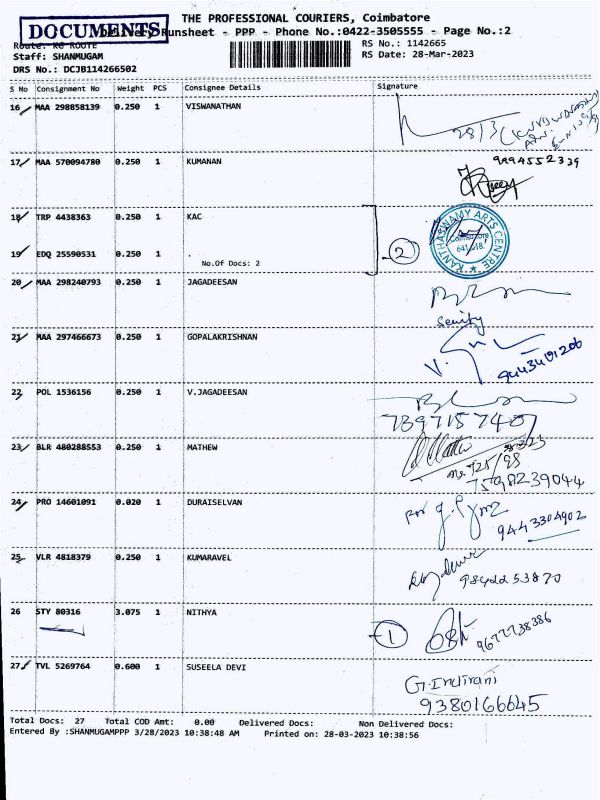 THE PROFESSIONAL COURIERS, Coimbatore
DOCUMENTS
Delivery Runsheet - PPP - Phone No.:0422-3505555 - Page No.:2
Route: KG ROUTE
RS No.: 1142665
Staff: SHANMUGAM
RS Date: 28-Mar-2023
DRS No.: DCJB114266502
S No Consignment No Weight PCS Consignee Details Signature
16 MAA 298858139 0.250 1 VISWANATHAN
28/3
17 MAA 570094780 0.250 1 KUMANAN
9994552339
18 TRP 4438363 0.250 1 KAC
KANTHASWAMY ARTS CENTRE
2
19 EDQ 25590531 0.250 1 .
No.Of Docs: 2
20 MAA 298240793 0.250 1 JAGADEESAN
21 MAA 297466673 0.250 1 GOPALAKRISHNAN
22 POL 1536156 0.250 1 V.JAGADEESAN
7397157407
23 BLR 480288553 0.250 1 MATHEW
7598239044
24 PRO 14601091 0.020 1 DURAISELVAN
9443304902
25 VLR 4818379 0.250 1 KUMARAVEL
26 STY 80316 3.075 1 NITHYA
1
9677738386
27 TVL 5269764 0.600 1 SUSEELA DEVI
G.Indirani
9380166645
Total Docs: 27 Total COD Amt: 0.00 Delivered Docs: Non Delivered Docs:
Entered By :SHANMUGAMPPP 3/28/2023 10:38:48 AM Printed on: 28-03-2023 10:38:56